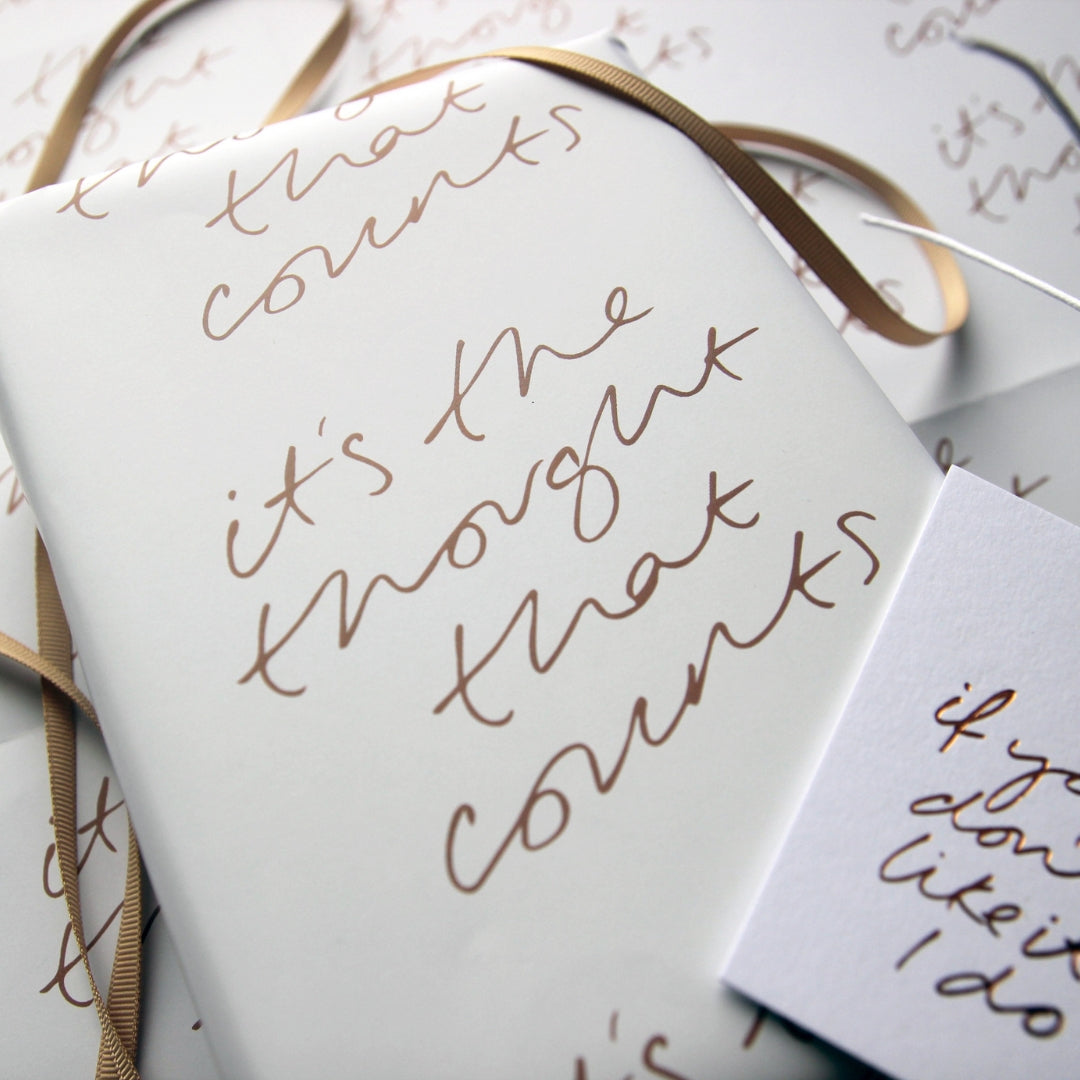 that
counts
it's the
thought
that
counts
if you
don't
like it
I do
it's